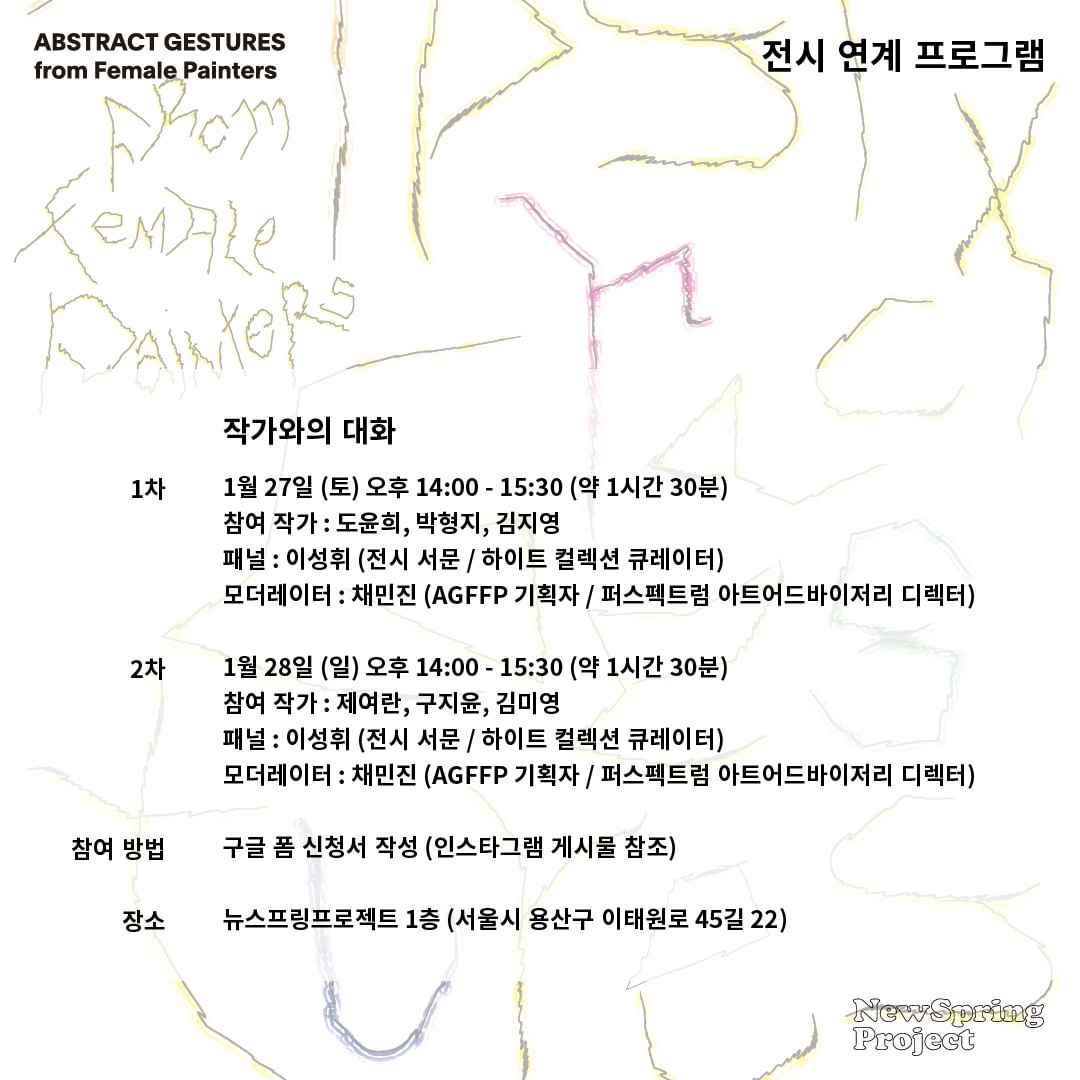 ABSTRACT GESTURES
from Female Painters
전시 연계 프로그램
FROM
FEMALE
PAINTERS
작가와의 대화
1차
1월 27일 (토) 오후 14:00 - 15:30 (약 1시간 30분)
참여 작가 : 도윤희, 박형지, 김지영
패널 : 이성휘 (전시 서문 / 하이트 컬렉션 큐레이터)
모더레이터 : 채민진 (AGFFP 기획자 / 퍼스펙트럼 아트어드바이저리 디렉터)
2차
1월 28일 (일) 오후 14:00 - 15:30 (약 1시간 30분)
참여 작가 : 제여란, 구지윤, 김미영
패널 : 이성휘 (전시 서문 / 하이트 컬렉션 큐레이터)
모더레이터 : 채민진 (AGFFP 기획자 / 퍼스펙트럼 아트어드바이저리 디렉터)
참여 방법
구글 폼 신청서 작성 (인스타그램 게시물 참조)
장소
뉴스프링프로젝트 1층 (서울시 용산구 이태원로 45길 22)
NewSpring
Project